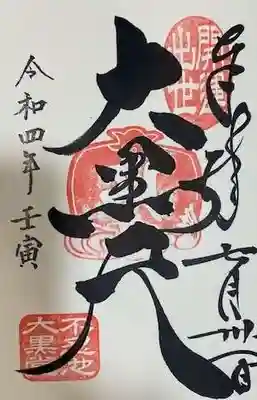 奉拝
七月卅一日
開運
出世
大黒天
令和四年 壬寅
不忍池
大黒堂